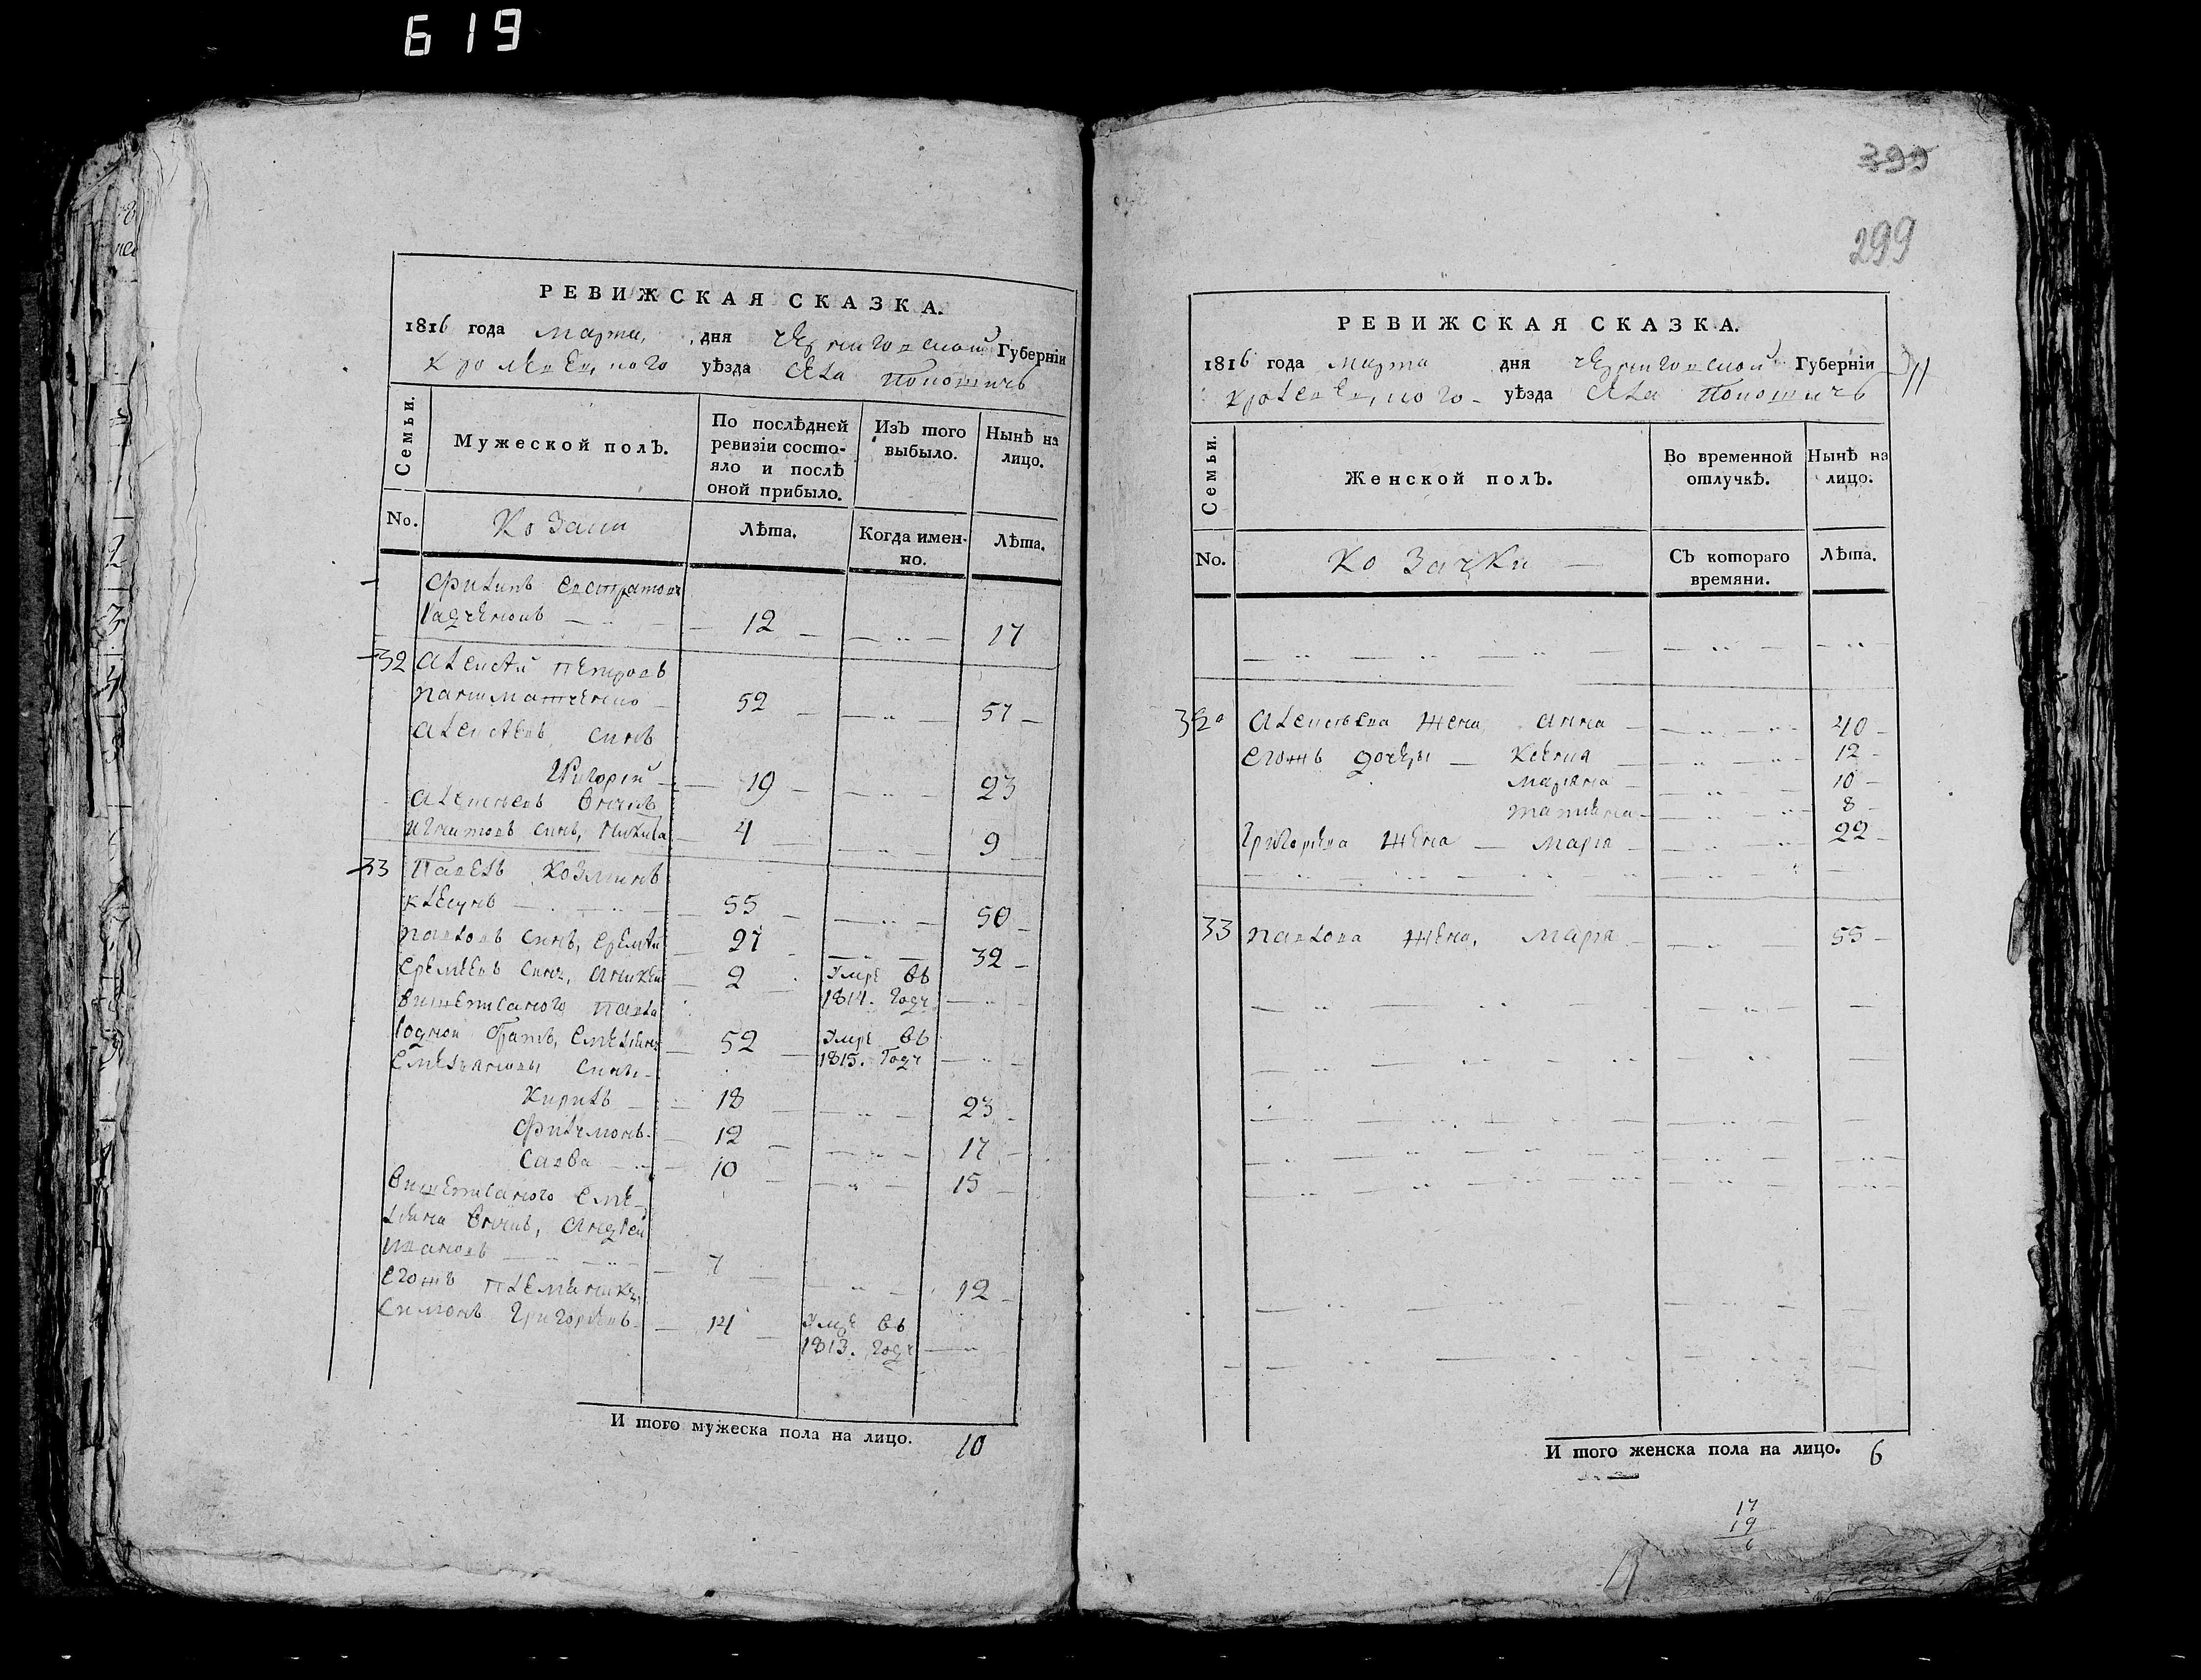 619
РЕВИЖСКАЯ СКАЗКА.
1816 года марта дня Черниговской Губерніи
Кролевецкого уѣзда села Поношичъ
Семьи.
Мужеской полъ.
По послѣдней ревизіи состояло и послѣ оной прибыло.
Изъ того выбыло.
Нынѣ на лицо.
No.
Козаки
Лѣта.
Когда именно.
Лѣта.
Филипъ Евстратовъ
12 17
32 Алексѣй Петровъ
52 57
Алексѣевъ синъ
Григорій 19 23
Алексѣевъ внукъ
Игнатовъ синъ, Никита 4 9
33 Павелъ Козминъ
55 50
Павловъ синъ, Еремѣй 27 32
Еремѣевъ синъ, Аникей 2 Умре въ
1814. году
Вишеписаного Павла
родной братъ, Емелянъ 52 Умре въ
1815. году
Емельяновы сины
Кирилъ 18 23
Филимонъ 12 17
Савва 10 15
Вишеписаного Еме-
ляна внукъ, Андрей
Ивановъ 7 12
Егожъ племяникъ,
Симонъ Григорьевъ 14 Умре въ
1813. году
И того мужеска пола на лицо. 10
399
299
РЕВИЖСКАЯ СКАЗКА.
1816 года марта дня Черниговской Губерніи
Кролевецкого уѣзда села Поношичъ
Семьи.
Женской полъ.
Во временной отлучкѣ.
Нынѣ на лицо.
No.
Козачки
Съ котораго времяни.
Лѣта.
32 Алексѣева жена Анна 40
Егожъ дочеры Ксения 12
Маряна 10
Татияна 8
Григорьева жена Марія 22
33 Павлова жена, Марія 55
И того женска пола на лицо. 6
17
19
6